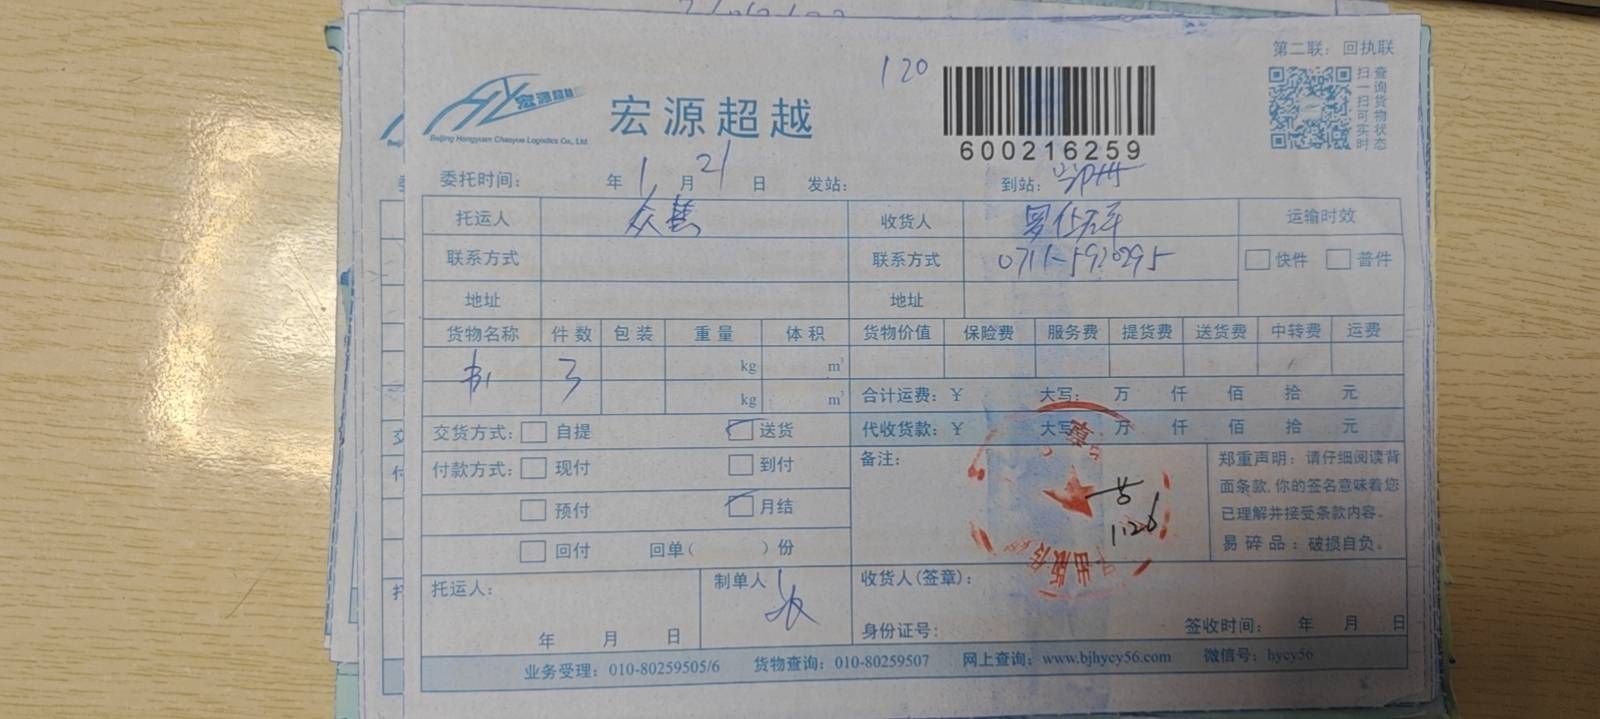 第二联：回执联
120
宏源超越
Beijing Hongyuan Chaoyue Logistics Co., Ltd.
宏源超越
600216259
扫一扫可实时
查询货物状态
委托时间： 年 1 月 21 日 发站： 到站：
托运人 收货人 运输时效
联系方式 联系方式 快件 普件
地址 地址
货物名称 件数 包装 重量 体积 货物价值 保险费 服务费 提货费 送货费 中转费 运费
书 3 kg m³
kg m³
合计运费：￥ 大写： 万 仟 佰 拾 元
交货方式： 自提 送货
代收货款：￥ 大写 万 仟 佰 拾 元
付款方式： 现付 到付
预付 月结
回付 回单（ ）份
备注：
1.26
郑重声明：请仔细阅读背
面条款,你的签名意味着您
已理解并接受条款内容。
易碎品：破损自负。
托运人： 制单人 收货人(签章)：
年 月 日 身份证号： 签收时间： 年 月 日
业务受理：010-80259505/6 货物查询：010-80259507 网上查询：www.bjhycy56.com 微信号：hycy56